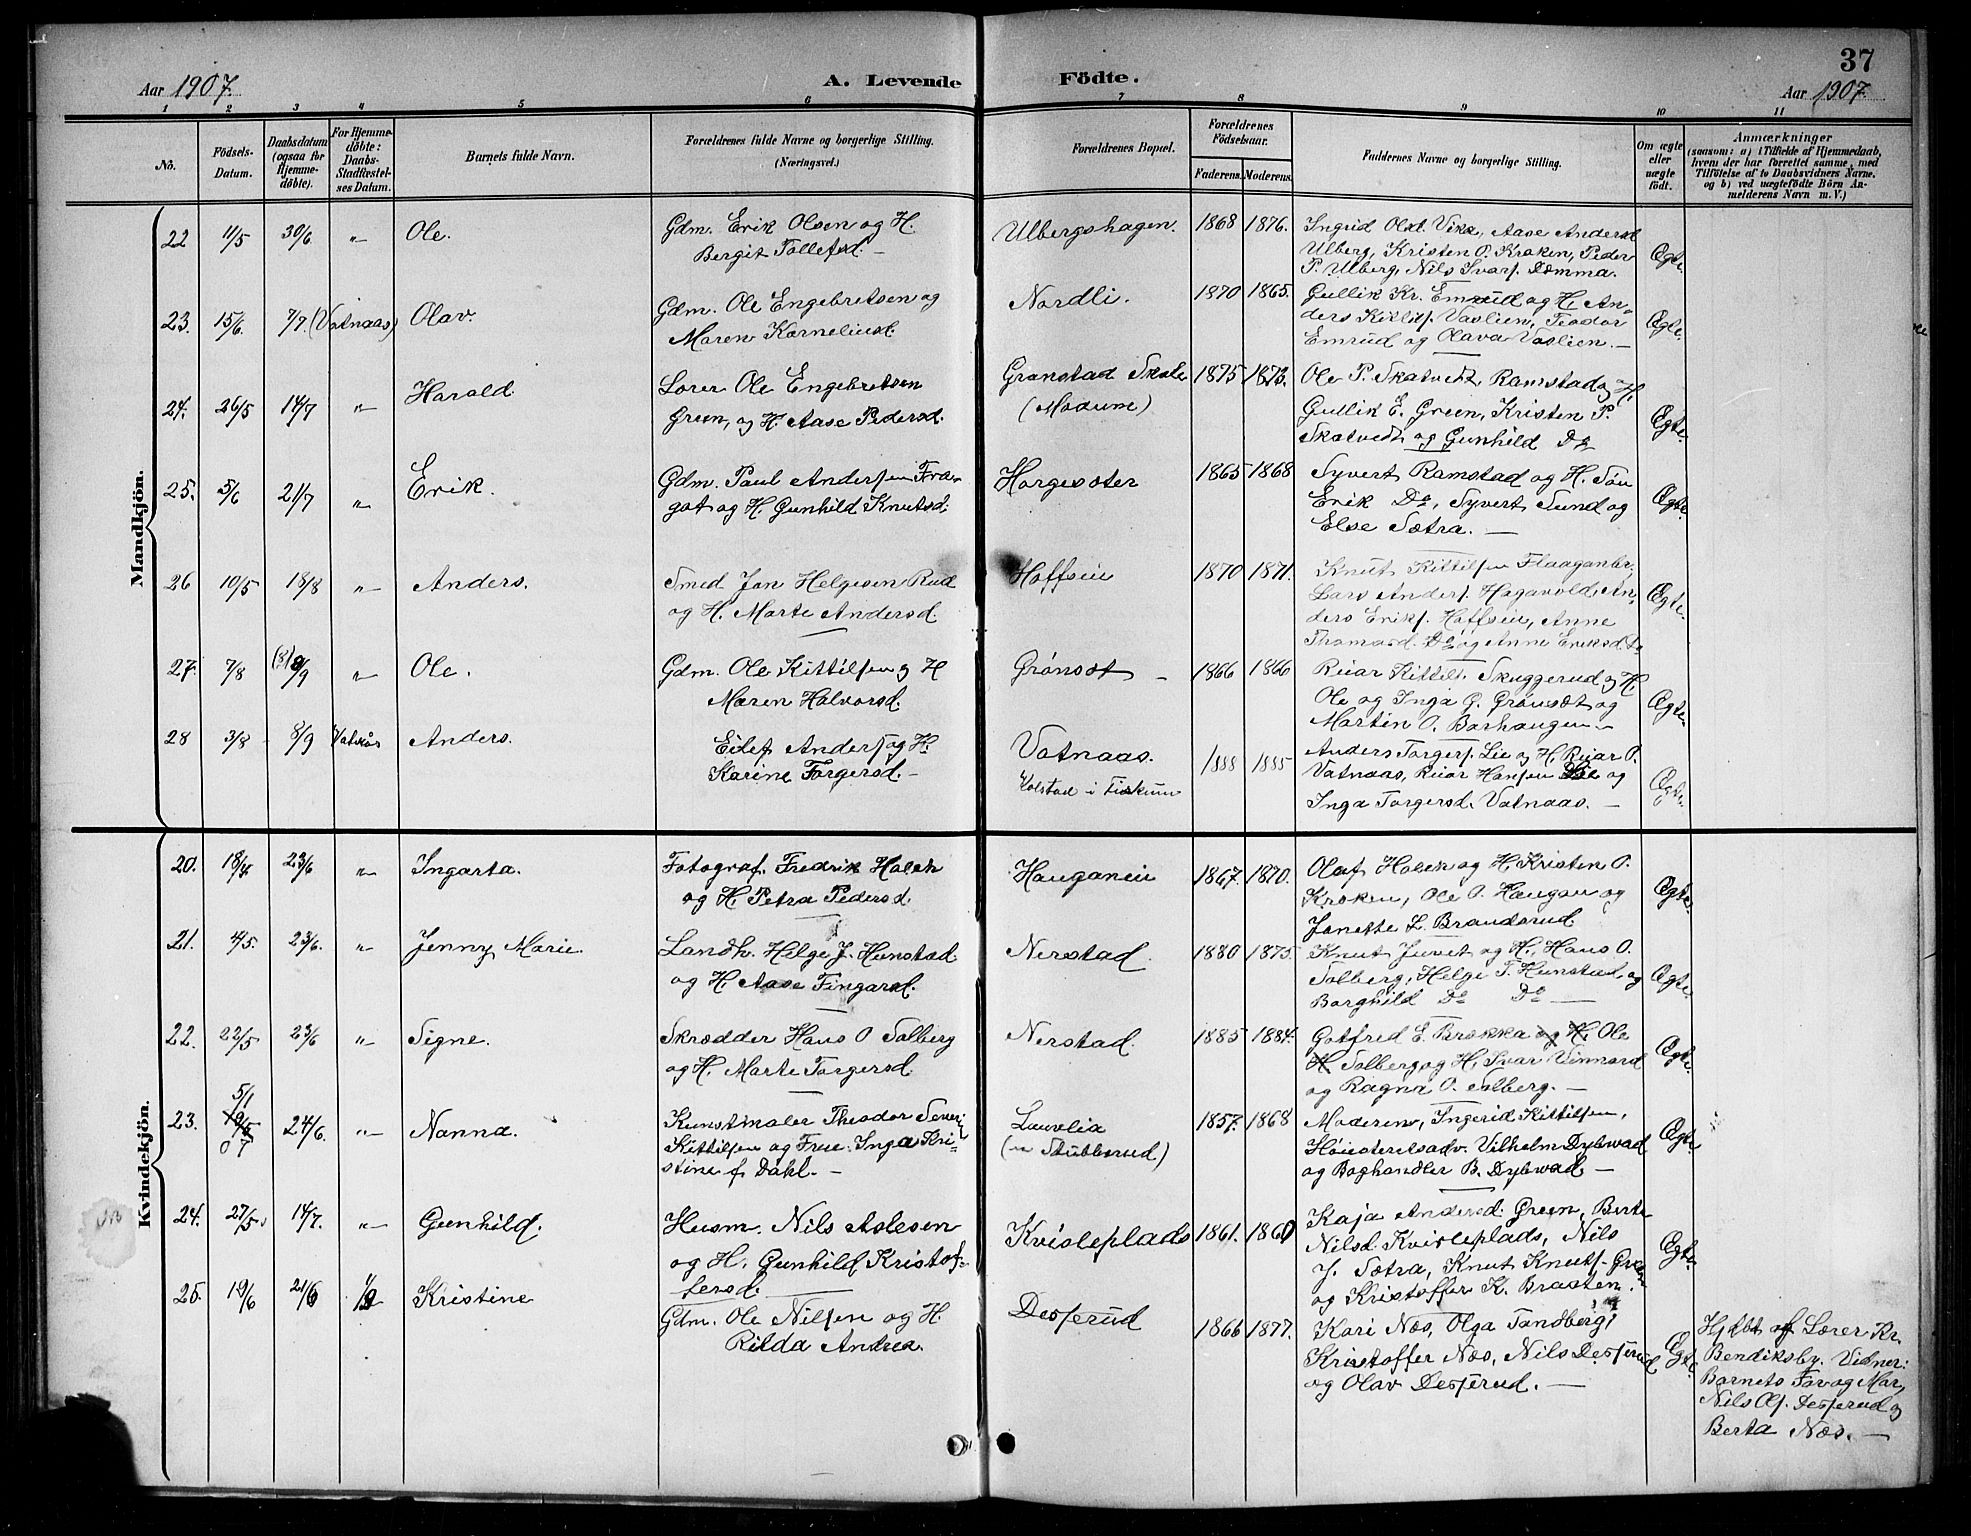 37
Aar 1907.
A. Levende Födte.
Aar 1907.
1 2 3 4 5 6 7 8 9 10 11
No.
Födsels-
Datum.
Daabsdatum
(ogsaa for
Hjemme-
döbte).
For Hjemme-
döbte:
Daabs-
Stadfæstel-
ses Datum.
Barnets fulde Navn.
Forældrenes fulde Navne og borgerlige Stilling.
(Næringsvei.)
Forældrenes Bopæl.
Forældrenes
Födselsaar.
Faderens. Moderens.
Faddernes Navne og borgerlige Stilling.
Om ægte
eller
uægte
födt.
Anmærkninger
(saasom: a) i Tilfælde af Hjemmedaab,
hvem der har forrettet samme, med
Tilföielse af to Daabsvidners Navne.
og b) ved uægtefödte Börn An-
melderens Navn m. V.)
Mandkjön.
22 11/5 30/6 " Ole.
Gdm. Erik Olsen og H.
Bergit Tollefsd.
Ulbergshagen. 1868 1876.
Ingrid Olsd. Vike, Aase Andersd
Ulberg, Kristen O. Kroken, Peder
P. Ulberg, Nils Svars. Dæmma.
Ægte.
23. 15/6 7/7 (Vatnaas) Olav.
Gdm. Ole Engebretsen og
Maren Korneliusd.
Nordli. 1870 1865.
Gullik Kr. Emrud og H. An-
ders Kittils. Vaslien, Teodor
Emrud og Olava Vaslien. —
Ægte.
24. 26/5 14/7 " Harald
Lærer Ole Engebretsen
Green, og H. Aase Pedersd.
Grønstad Skole
(Modum)
1875 1873.
Ole P. Skatvedt, Ramstad og H.
Gullik E. Green, Kristen P.
Skatvedt og Gunhild Do
Ægte.
25. 5/6 21/7 " Erik.
Gdm. Paul Andersen Fra-
gat og H. Gunhild Knutsd.
Horgesæter 1865 1868
Syvert Ramstad og H. Søn
Erik Do, Syvert Sund og
Else Sætra. —
Ægte.
26 10/5 18/8 " Anders.
Smed Jan Helgesen Rud
og H. Marte Andersd.
Hoffsen 1870 1871.
Knut Kittilsen Flaaganbr.,
Lars Anders. Hagavold, An-
ders Eriks. Hoffsen, Anne
Thomasd. Do og Anne Eriksd. Do
Ægte.
27. 7/8 (8) 8/9 " Ole.
Gdm. Ole Kittilsen og H
Maren Halvorsd.
Grønsæt 1866 1866
Reiar Kittils. Skuggerud og H.
Ole og Inga G. Grønsæt og
Martin O. Borhaugen. —
Ægte.
28 3/8 8/9 Vatnås Anders.
Eilef Anders. og H.
Karine Torgersd. —
Vatnaas.
Kolstad i Fiskum
1888 1885
Anders Torgers. Lie og H. Reiar P.
Vatnaas, Reiar Hansen Lie og
Inga Torgersd. Vatnaas. —
Ægte.
Kvindekjön.
20. 18/4 23/6 " Ingarta.
Fotograf. Fredrik Holch
og H. Petra Pedersd.
Hauganeie 1867. 1870.
Olaf Holch og H. Kristen O.
Kroken, Ole O. Haugan og
Janette L. Brandsrud.
Ægte.
21. 4/5. 23/6. " Jenny Marie
Landh. Helge J. Hunstad.
og H. Aase Fingarsd.
Nerstad. 1880 1875.
Knut Juvet og H., Hans O.
Solberg, Helge T. Hunstad, og
Borghild Do Do —
Ægte.
22. 22/5 23/6 " Signe.
Skrædder Hans O Solberg
og H. Marte Torgersd.
Nerstad. 1885 1884.
Gotfred E. Brekka og H. Ole
H. Solberg og H. Svar Vinnerd
og Ragna O. Solberg. —
Ægte.
23. 5/1 07 24/6. " Nanna.
Kunstmaler Theodor Severin
Kittilsen og Frue: Inga Kri-
stine f. Dahl. —
Lauvlia
(u Stubberud)
1857. 1868
Moderen, Ingerid Kittilsen,
Høiesteretsadv. Vilhelm Dybwad
og Boghandler B. Dybwad —
Ægte
24. 27/5 14/7. " Gunhild.
Husm. Nils Aslesen
og H. Gunhild Kristof-
fersd.
Kvisleplads 1861. 1860
Kaja Andersd. Green, Berte
Nilsd. Kvisleplads, Nils
J. Sætra, Knut Knuts. Green
og Kristoffer K. Braaten.
Ægte.
25. 19/6 21/6 1/9 Kristine
Gdm. Ole Nilsen og H.
Rilda Andrea.
Desserud 1866 1877.
Kari Næs, Olga Tandberg,
Kristoffer Næs, Nils Desserud
og Olav Desserud. —
Ægte.
Hjdbt af Lærer Kr.
Bendiksby. Vidner:
Barnets Far og Mor,
Nils Ols. Desserud og
Berta Næs. —